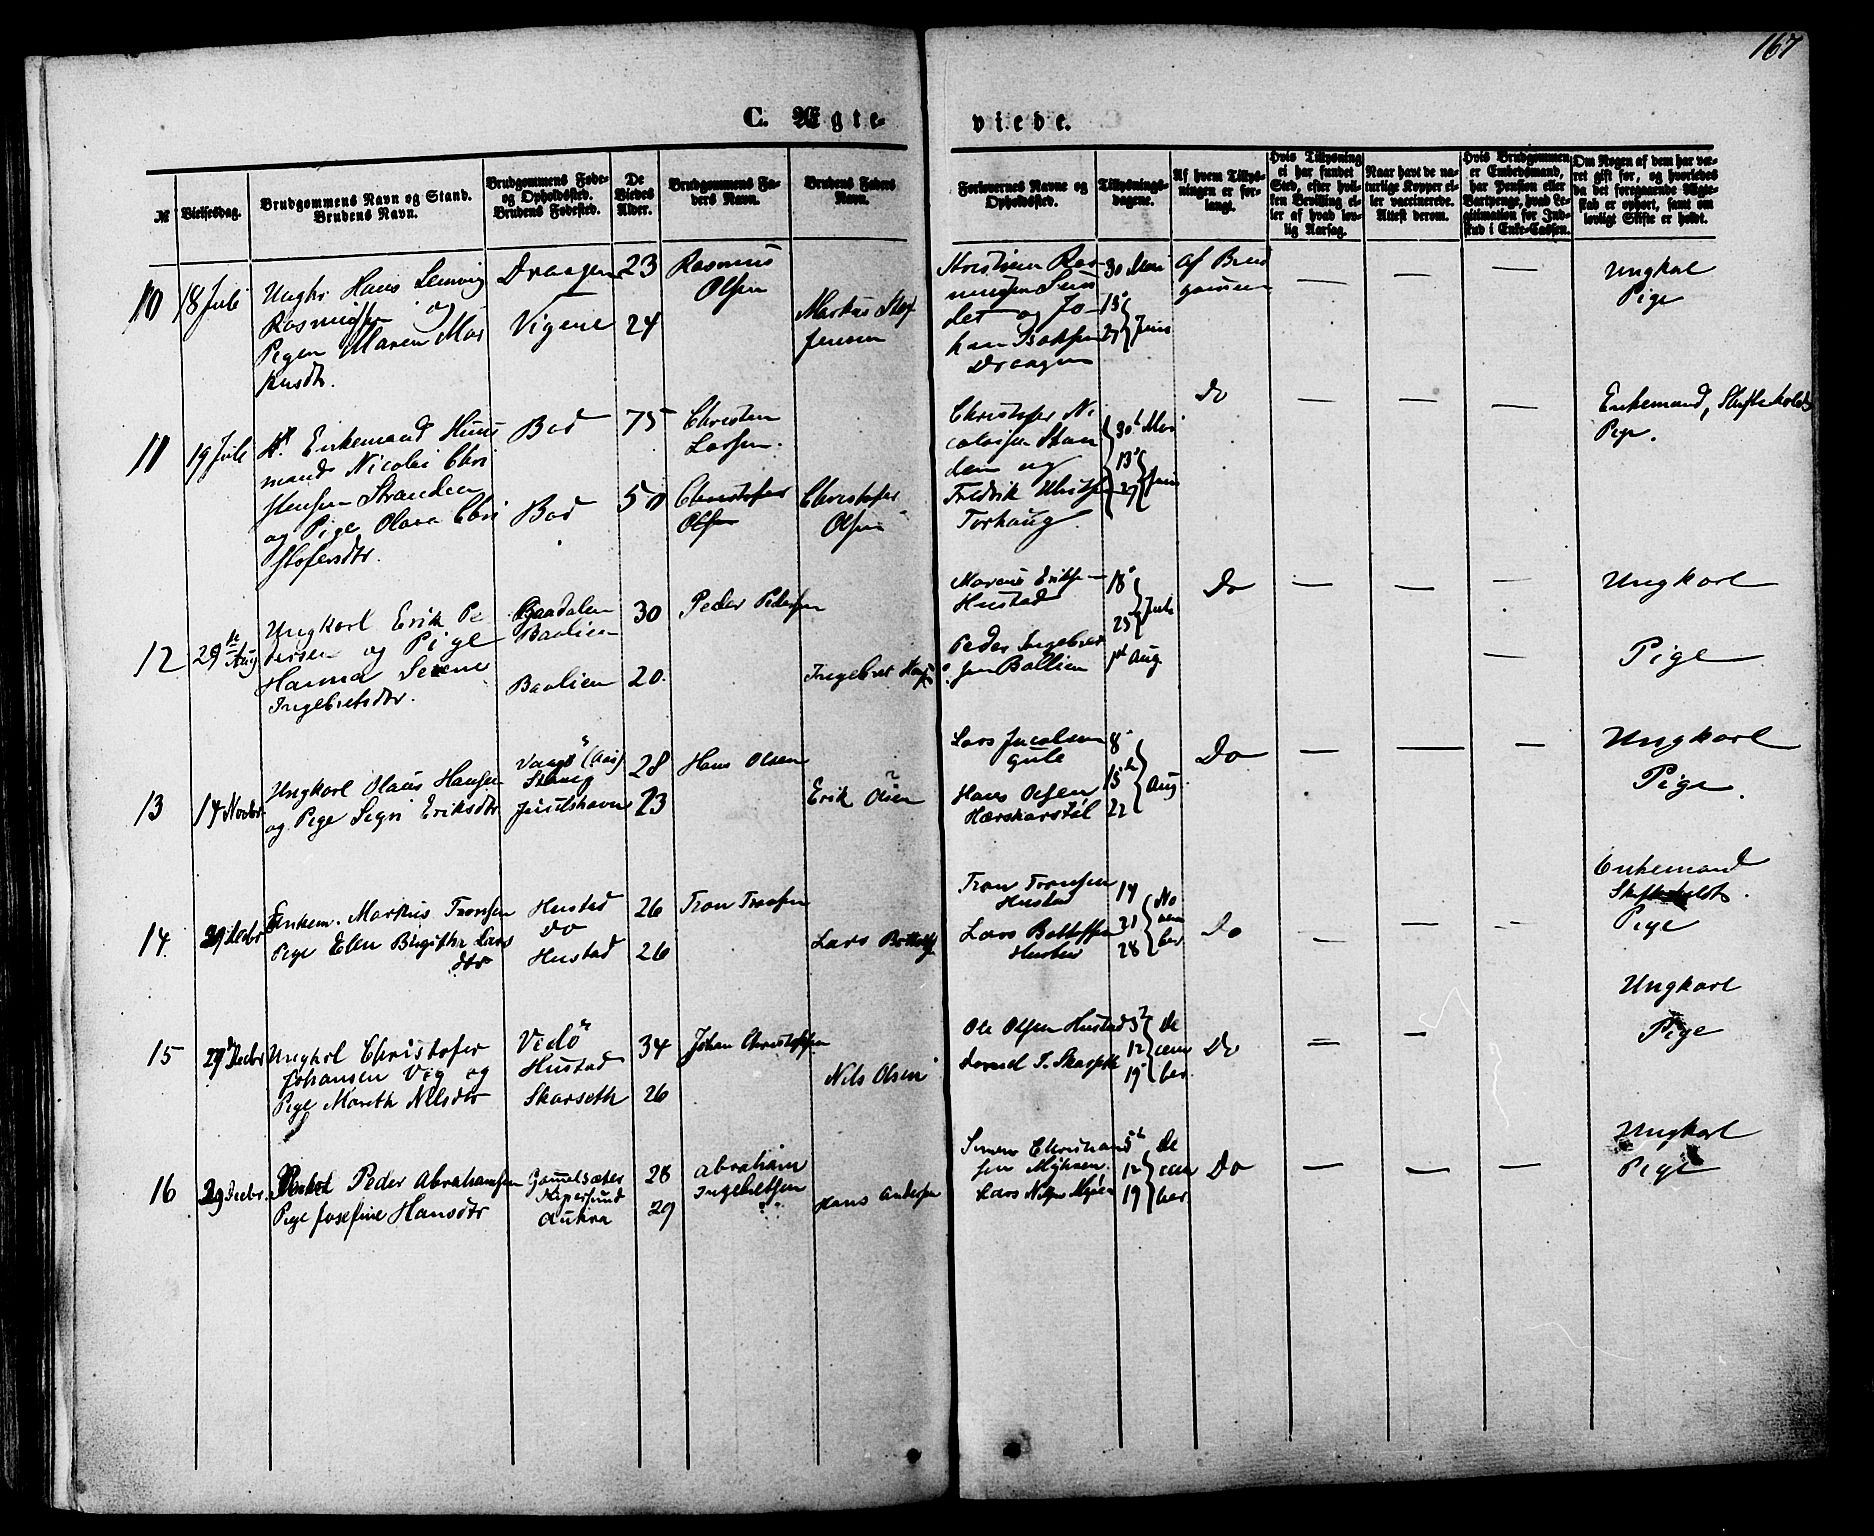 167
C. Ægte-
viede.
№
Vielsesdag.
Brudgommens Navn og Stand.
Brudens Navn.
Brudgommens Føde-
og Opholdssted.
Brudens Fødested.
De
Viedes
Alder.
Brudgommens Fa-
ders Navn.
Brudens Faders
Navn.
Forlovernes Navne og
Opholdssted.
Tillysnings-
dagene.
Af hvem Tillys-
ningen er for-
langt.
Hvis Tillysning
ei har fundet
Sted, efter hvil-
ken Bevilling el-
ler af hvad lov-
lig Aarsag.
Naar havt de na-
turlige Kopper el-
ler vaccinerede.
Attest derom.
Hvis Brudgommen
er Embedsmand,
har Pension eller
Vartpenge, hvad Le-
gitimation for Ind-
skud i Enke-Cassen.
Om Nogen af dem har væ-
ret gift før, og hvorledes
da det foregaaende Ægte-
skab er ophørt, samt om
lovligt Skifte er holdt.
10
18 Juli
Ungkr Hans Lemvig
og
Pigen Maren Mar
kusdtr.
Draagen
Vigene
23
24
Rasmus
Olsen
Markus
30 Mai
13
27
Juni
Af Brud
gommen
Draagen
Ungkal
Pige
11
19 Juli
Enkemand Huus
mand Nicolai Chri
stensen Stranden
og Pige Olava Chri
stofersdtr.
Bod
Bod
75
50
Christen
Larsen.
Christofer
Olsen
Christofer
Olsen
Christofer Ni
colaisen Stran
den og
Fredrik
Torhaug
30 Mai
13
27
Juni
Do
Enkemand, Skifte holdt
Pige.
12
29 Aug
Ungkarl Erik Pe
dersen og Pige
Hanna Serene
Ingebretsdtr.
Baadalen
Baolien
Baolien
30
20
Peder Pedersen
Ingebret
Marcus Eriksen
Hustad
Peder Ingebret
sen Bollien
18
25
Juli
1 Aug
Do
Ungkarl
Pige
13
14 Novbr
Ungkarl Olaus Hansen
og Pige Segri Eriksdtr
28
23
Hans Olsen
Erik Olsen
Lars Jacobsen
Gule
Hans Olsen
Hærskarstøl
8
15
22
Aug
Do
Ungkarl
Pige
14
29 Decbr
Enkem. Markus Tronsen
Pige Elen Birgitha Lars
dtr
Hustad
Do
Hustad
26
26
Tron Tronsen
Lars
Tron Tronsen
Hustad
Lars
14
21
28
No
vem
ber
Do
Enkemand
Skifte holdt.
Pige
15
29 Decbr
Ungkarl Christofer
Johansen Vig og
Pige Mareth Nilsdtr
Vedö
Hustad
Skarseth
34
26
Johan Christofersen
Nils Olsen
Ole Olsen Hustad
5
12
19
De
cem
ber
Do
Ungkarl
Pige
16
29 Decbr.
Peder Abrahamsen
Pige Josefine Hansdtr
Gammelsæter
Aukra
28
29
Abraham
Ingebretsen
Hans Andersen
5
12
19
De
cem
ber
Do
Ungkarl
Pige